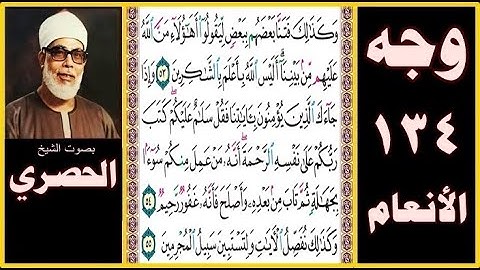 وجه
١٣٤
الأنعام
وَكَذَٰلِكَ فَتَنَّا بَعْضَهُم بِبَعْضٍ لِّيَقُولُوٓا۟ أَهَٰٓؤُلَآءِ مَنَّ ٱللَّهُ
عَلَيْهِم مِّنۢ بَيْنِنَآ ۗ أَلَيْسَ ٱللَّهُ بِأَعْلَمَ بِٱلشَّٰكِرِينَ ٥٣ وَإِذَا
جَآءَكَ ٱلَّذِينَ يُؤْمِنُونَ بِـَٔايَٰتِنَا فَقُلْ سَلَٰمٌ عَلَيْكُمْ ۖ كَتَبَ
رَبُّكُمْ عَلَىٰ نَفْسِهِ ٱلرَّحْمَةَ ۖ أَنَّهُۥ مَنْ عَمِلَ مِنكُمْ سُوٓءًۢا
بِجَهَٰلَةٍ ثُمَّ تَابَ مِنۢ بَعْدِهِۦ وَأَصْلَحَ فَأَنَّهُۥ غَفُورٌ رَّحِيمٌ ٥٤
وَكَذَٰلِكَ نُفَصِّلُ ٱلْـَٔايَٰتِ وَلِتَسْتَبِينَ سَبِيلُ ٱلْمُجْرِمِينَ ٥٥
بصوت الشيخ
الحصري